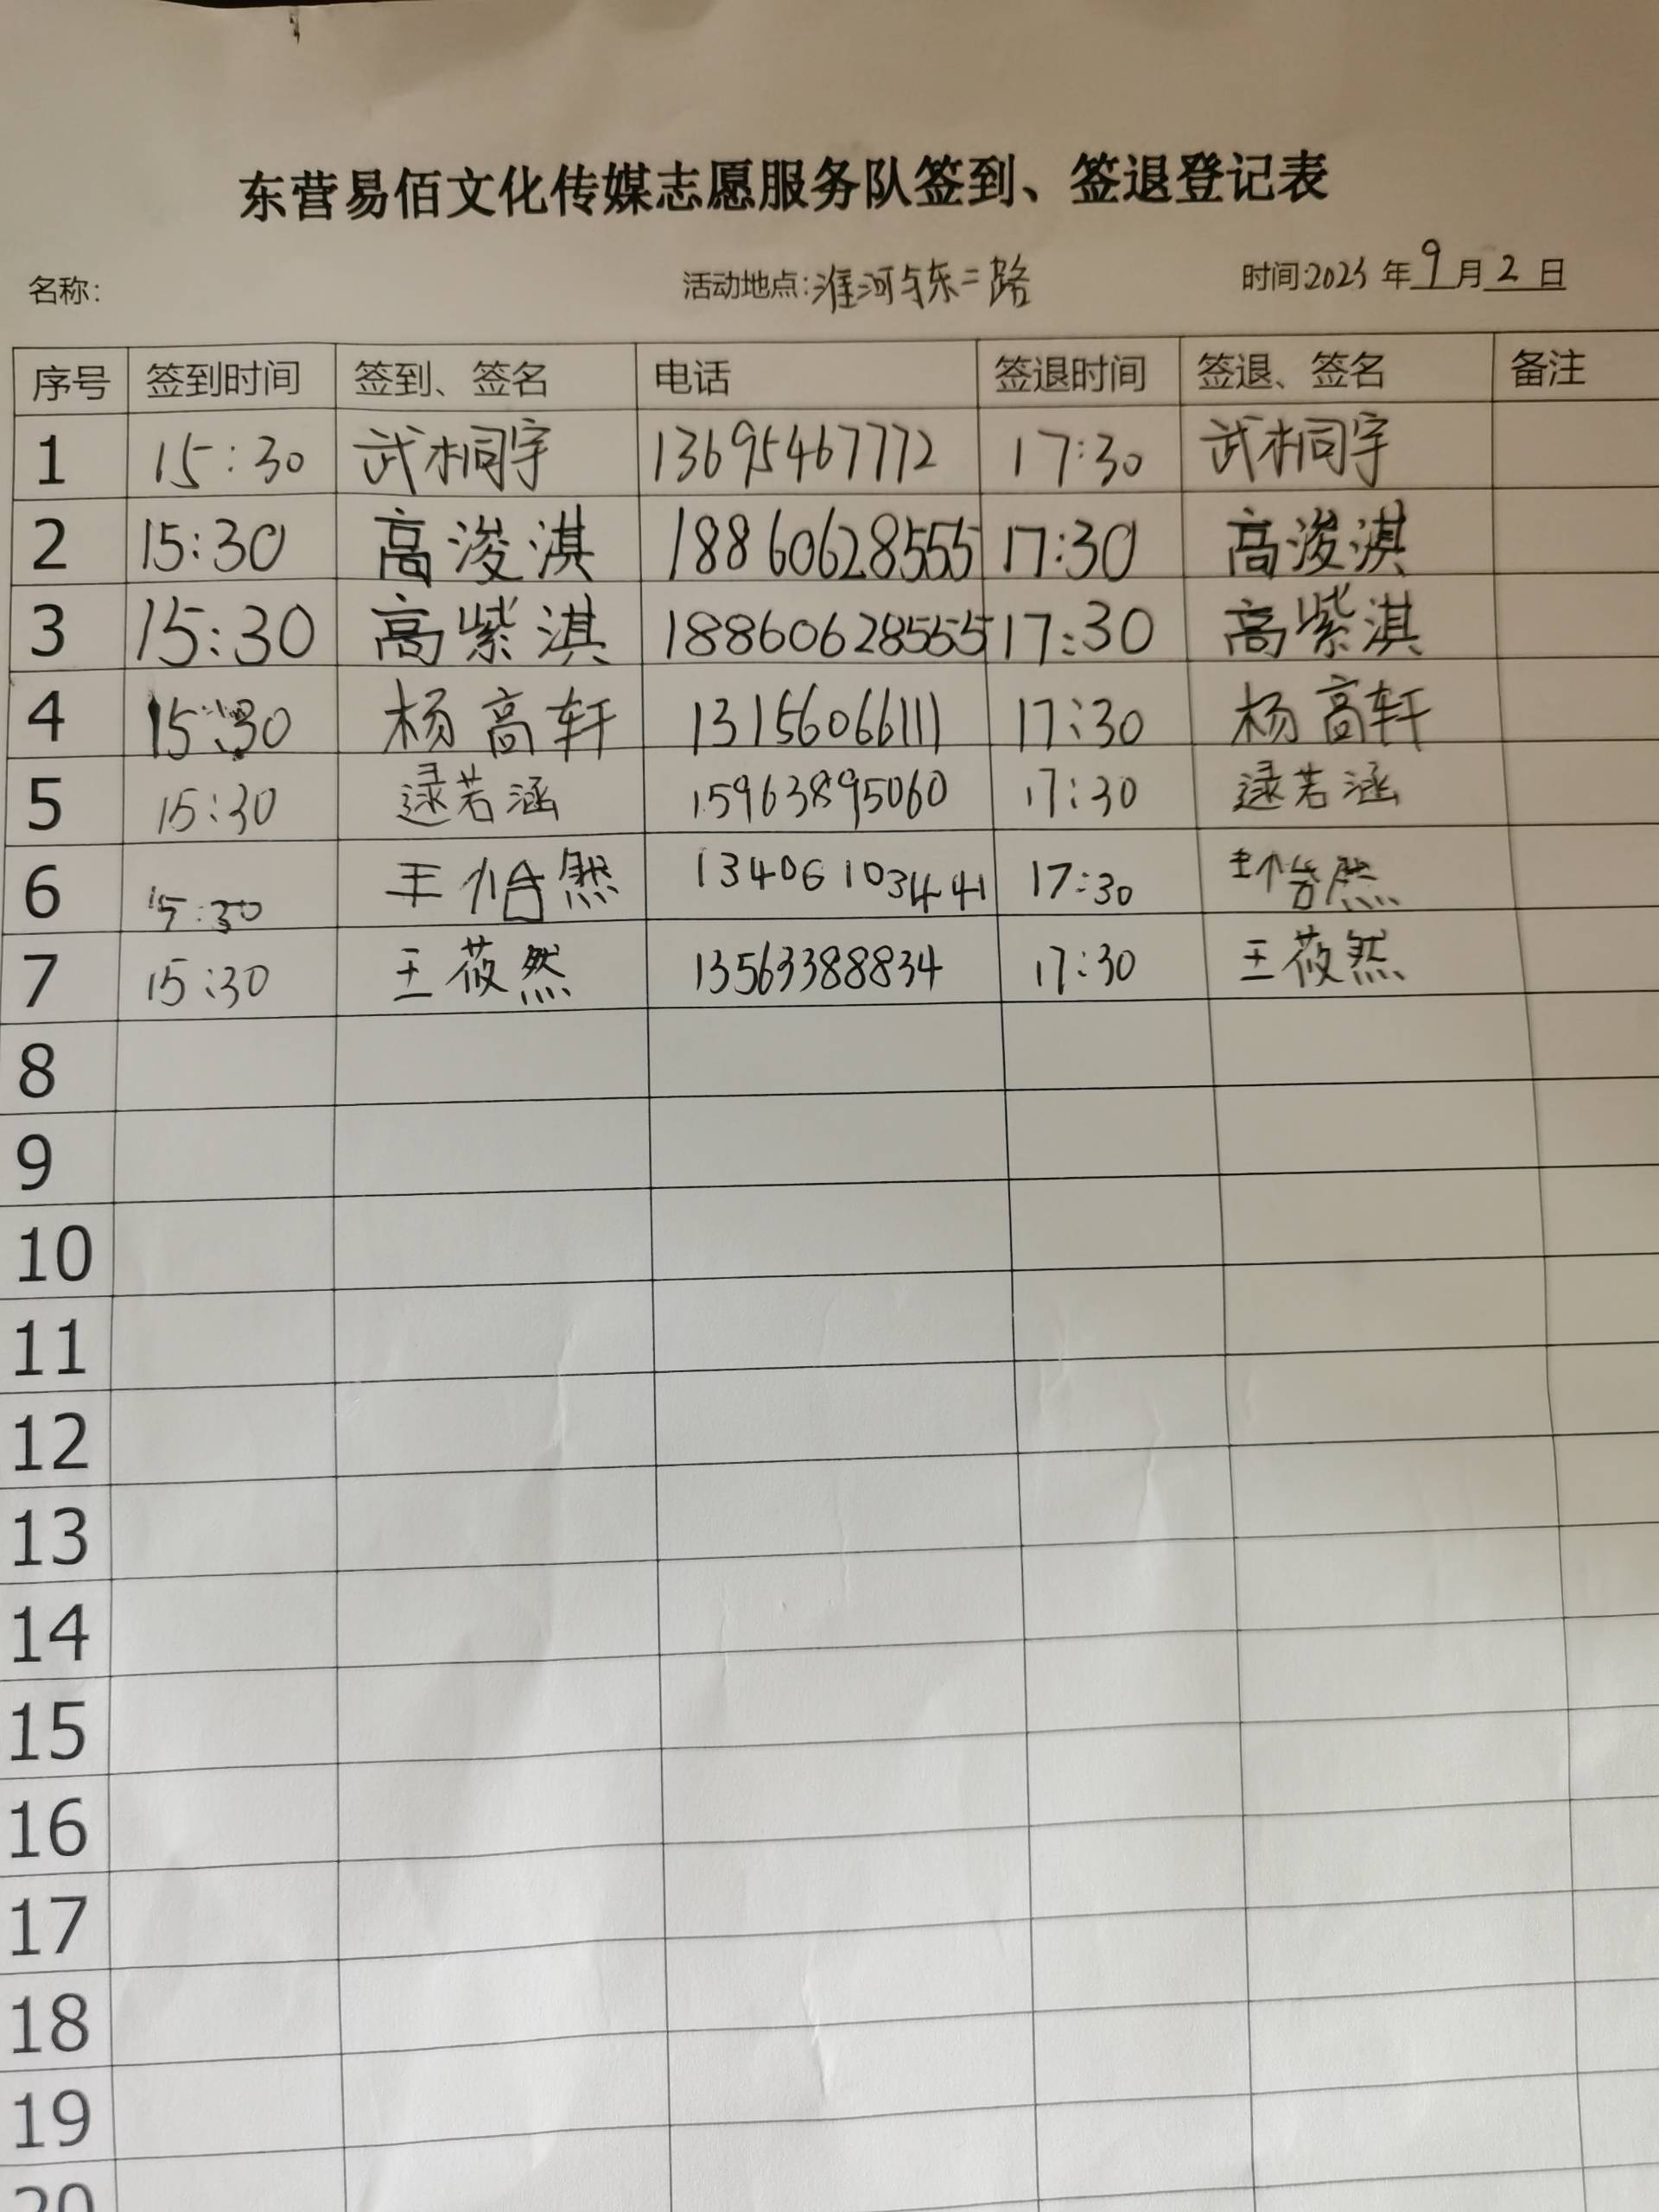 东营易佰文化传媒志愿服务队签到、签退登记表
名称: 活动地点:淮河与东二路 时间:2023 年 9 月 2 日
序号 签到时间 签到、签名 电话 签退时间 签退、签名 备注
1 15:30 武桐宇 13695467772 17:30 武桐宇
2 15:30 高浚淇 18860628555 17:30 高浚淇
3 15:30 高紫淇 18860628555 17:30 高紫淇
4 15:30 杨高轩 13156066111 17:30 杨高轩
5 15:30 逯若涵 15963895060 17:30 逯若涵
6 15:30 王怡然 13406103441 17:30 王怡然
7 15:30 王莜然 13563388834 17:30 王莜然
8
9
10
11
12
13
14
15
16
17
18
19
20